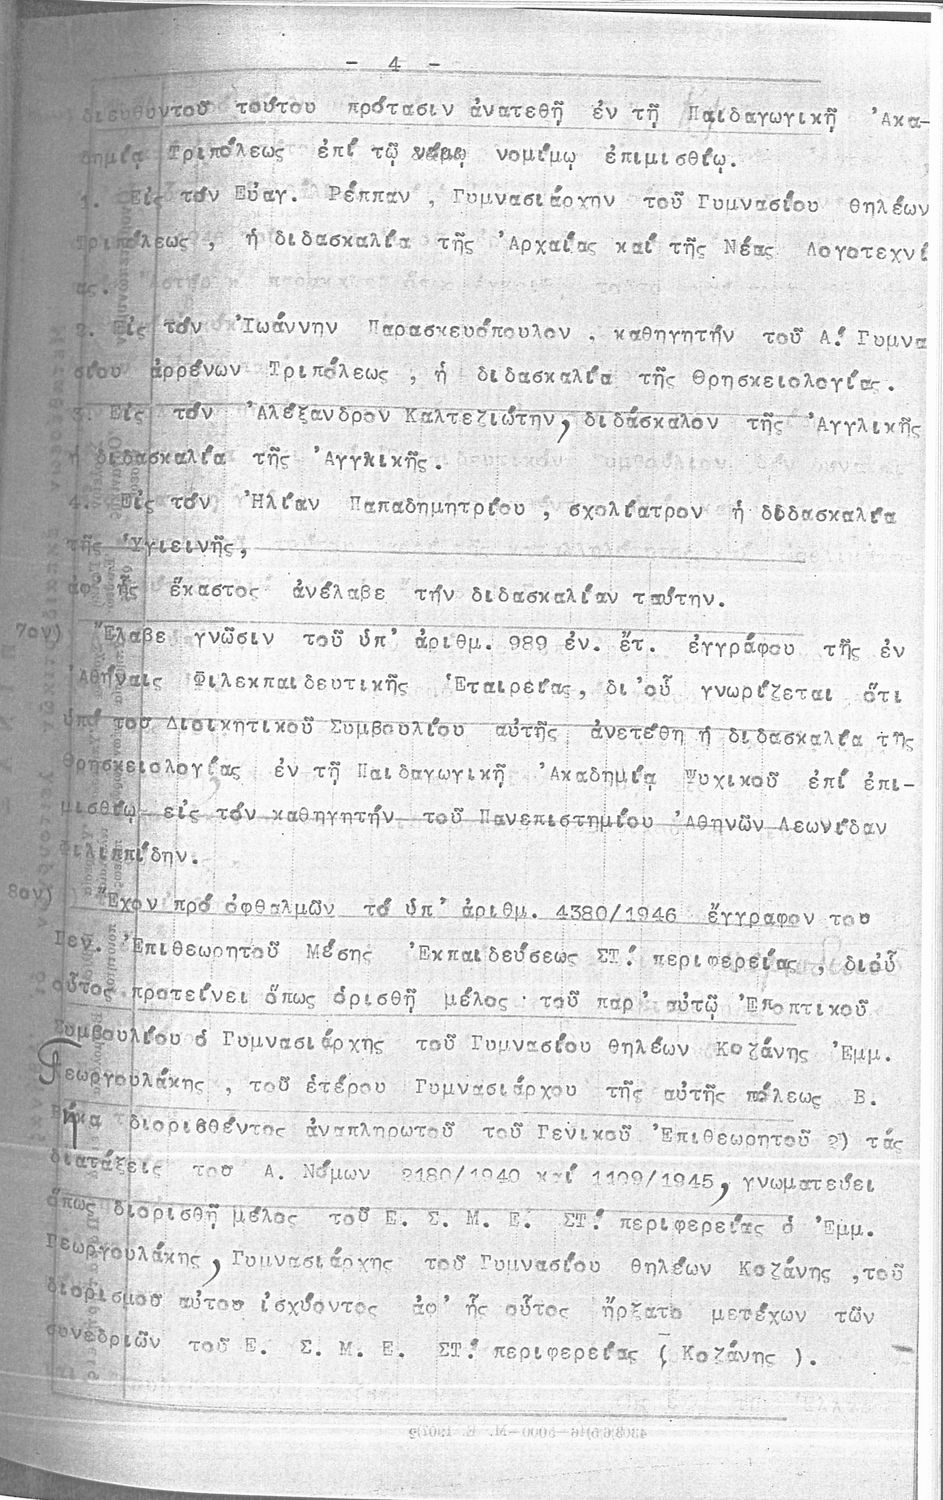 - 4 -
διευθύντοῦ τούτου πρότασιν ἀνατεθῇ ἐν τῇ Παιδαγωγικῇ Ἀκα-
δημίᾳ Τριπόλεως ἐπί τῷ νομίμῳ ἐπιμισθίῳ.
1. Εἰς τόν Εὐαγ. Ρέππαν , Γυμνασιάρχην τοῦ Γυμνασίου θηλέων
Τριπόλεως , ἡ διδασκαλία τῆς Ἀρχαίας καί τῆς Νέας Λογοτεχνί
ας.
2. Εἰς τόν Ἰωάννην Παρασκευόπουλον , καθηγητήν τοῦ Α! Γυμνα
σίου ἀρρένων Τριπόλεως , ἡ διδασκαλία τῆς Θρησκειολογίας.
3. Εἰς τόν Ἀλέξανδρον Καλτεζιώτην, διδάσκαλον τῆς Ἀγγλικῆς
ἡ διδασκαλία τῆς Ἀγγλικῆς.
4. Εἰς τόν Ἠλίαν Παπαδημητρίου , σχολίατρον ἡ διδασκαλία
τῆς Ὑγιεινῆς,
ἀφ ἧς ἕκαστος ἀνέλαβε τήν διδασκαλίαν ταύτην.
7ον) Ἔλαβε γνῶσιν τοῦ ὑπ' ἀριθμ. 989 ἐν. ἔτ. ἐγγράφου τῆς ἐν
Ἀθήναις Φιλεκπαιδευτικῆς Ἑταιρείας, δι'οὗ γνωρίζεται ὅτι
ὑπό του Διοικητικοῦ Συμβουλίου αὐτῆς ἀνετέθη ἡ διδασκαλία τῆς
Θρησκειολογίας ἐν τῇ Παιδαγωγικῇ Ἀκαδημίᾳ Ψυχικοῦ ἐπί ἐπι-
μισθίῳ εἰς τόν καθηγητήν τοῦ Πανεπιστημίου Ἀθηνῶν Λεωνίδαν
Φιλιππίδην.
8ον) Ἔχον πρό ὀφθαλμῶν τό ὑπ' ἀριθμ. 4380/1946 ἔγγραφον του
Γεν. Ἐπιθεωρητοῦ Μέσης Ἐκπαιδεύσεως ΣΤ! περιφερείας , διοὗ
οὗτος προτείνει ὅπως ὁρισθῇ μέλος τοῦ παρ' αὐτῷ Ἐποπτικοῦ
Συμβουλίου ὁ Γυμνασιάρχης τοῦ Γυμνασίου θηλέων Κοζάνης Ἐμμ.
Γεωργουλάκης , τοῦ ἑτέρου Γυμνασιάρχου τῆς αὐτῆς πόλεως Β.
διορισθέντος ἀναπληρωτοῦ τοῦ Γενικοῦ Ἐπιθεωρητοῦ 2) τάς
διατάξεις του Α. Νόμων 2180/1940 καί 1109/1945, γνωματεύει
ὅπως διορισθῇ μέλος τοῦ Ε. Σ. Μ. Ε. ΣΤ! περιφερείας ὁ Ἐμμ.
Γεωργουλάκης, Γυμνασιάρχης τοῦ Γυμνασίου θηλέων Κοζάνης ,τοῦ
διορισμου αὐτου ἰσχύοντος ἀφ' ἧς οὗτος ἤρξατο μετέχων τῶν
συνεδριῶν τοῦ Ε. Σ. Μ. Ε. ΣΤ! περιφερείας ( Κοζάνης ).